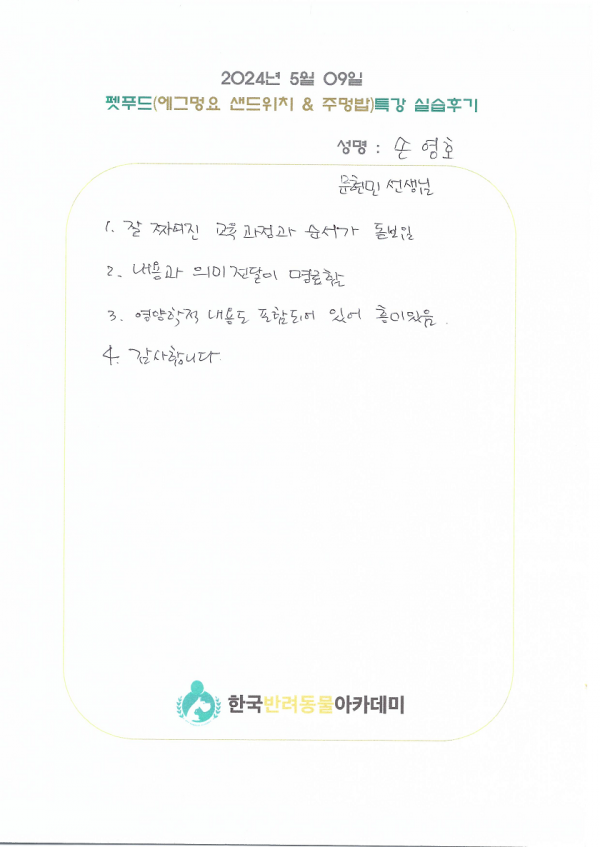 2024년 5월 09일
펫푸드(에그멍요 샌드위치 & 주멍밥)특강 실습후기
성명 : 손영호
문현민 선생님
1. 잘 짜여진 교육과정과 순서가 돋보임
2. 내용과 의미전달이 명료함
3. 영양학적 내용도 포함되어 있어 흥미있음.
4. 감사합니다
한국반려동물아카데미